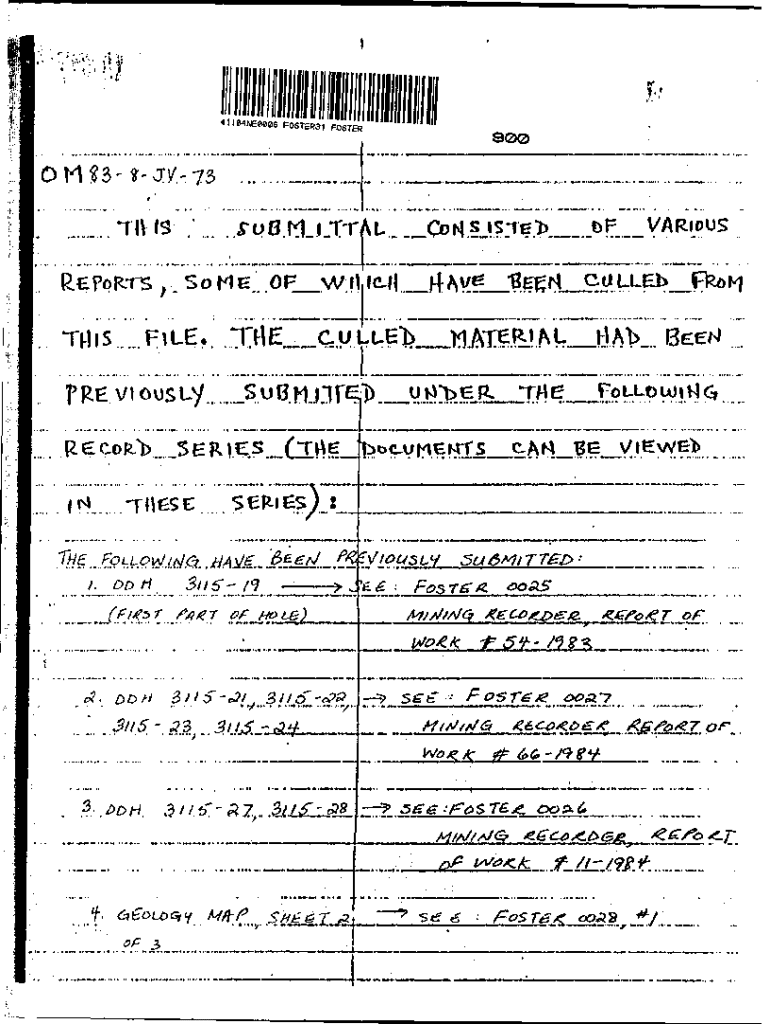 41I04NE0006 FOSTER31 FOSTER
900
OM83-8-JV-73
THIS SUBMITTAL CONSISTED OF VARIOUS
REPORTS, SOME OF WHICH HAVE BEEN CULLED FROM
THIS FILE. THE CULLED MATERIAL HAD BEEN
PREVIOUSLY SUBMITTED UNDER THE FOLLOWING
RECORD SERIES (THE DOCUMENTS CAN BE VIEWED
IN THESE SERIES):
THE FOLLOWING HAVE BEEN PREVIOUSLY SUBMITTED:
1. DDH 3115-19 → SEE: FOSTER 0025
(FIRST PART OF HOLE) MINING RECORDER, REPORT OF
WORK # 54-1983
2. DDH 3115-21, 3115-22, → SEE: FOSTER 0027
3115-23, 3115-24 MINING RECORDER REPORT OF
WORK # 66-1984
3. DDH 3115-27, 3115-28 → SEE: FOSTER 0026
MINING RECORDER, REPORT
OF WORK # 11-1984
4. GEOLOGY MAP, SHEET 2 → SEE: FOSTER 0028, #1
OF 3